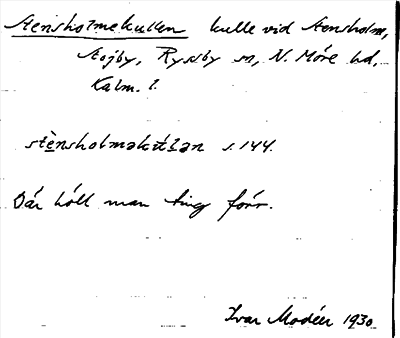 Stensholmekullen kulle vid Stensholm,
Stojby, Ryssby sn, N. Möre hd,
Kalm. l.
stènsholməkúl̀ən s. 144.
Där höll man ting förr.
Ivar Modéer 1930.